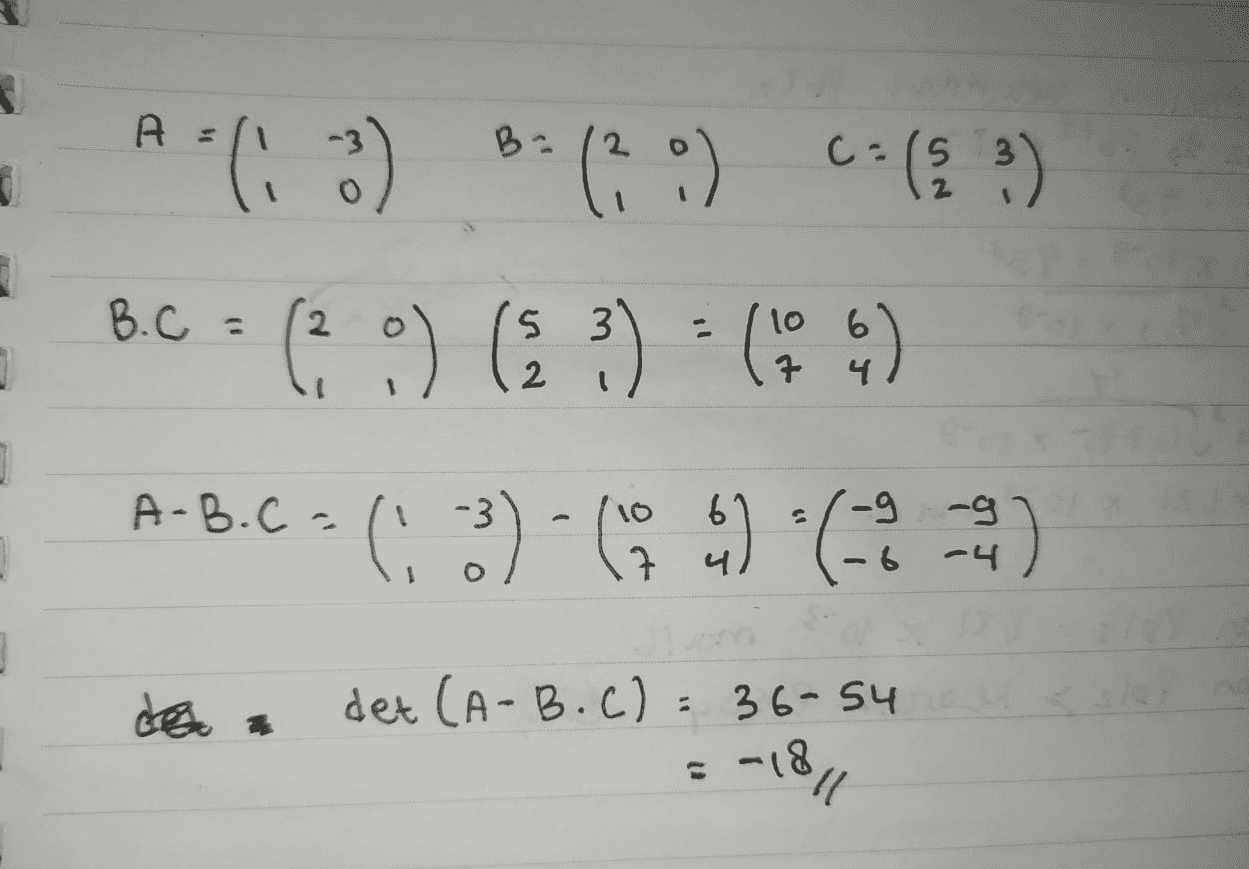 A = (1 -3
1 0) B = (2 0
1 1) C = (5 3
2 1)
B.C = (2 0
1 1) (5 3
2 1) = (10 6
7 4)
A-B.C = (1 -3
1 0) - (10 6
7 4) = (-9 -9
-6 -4)
det (A-B.C) = 36-54
= -18//